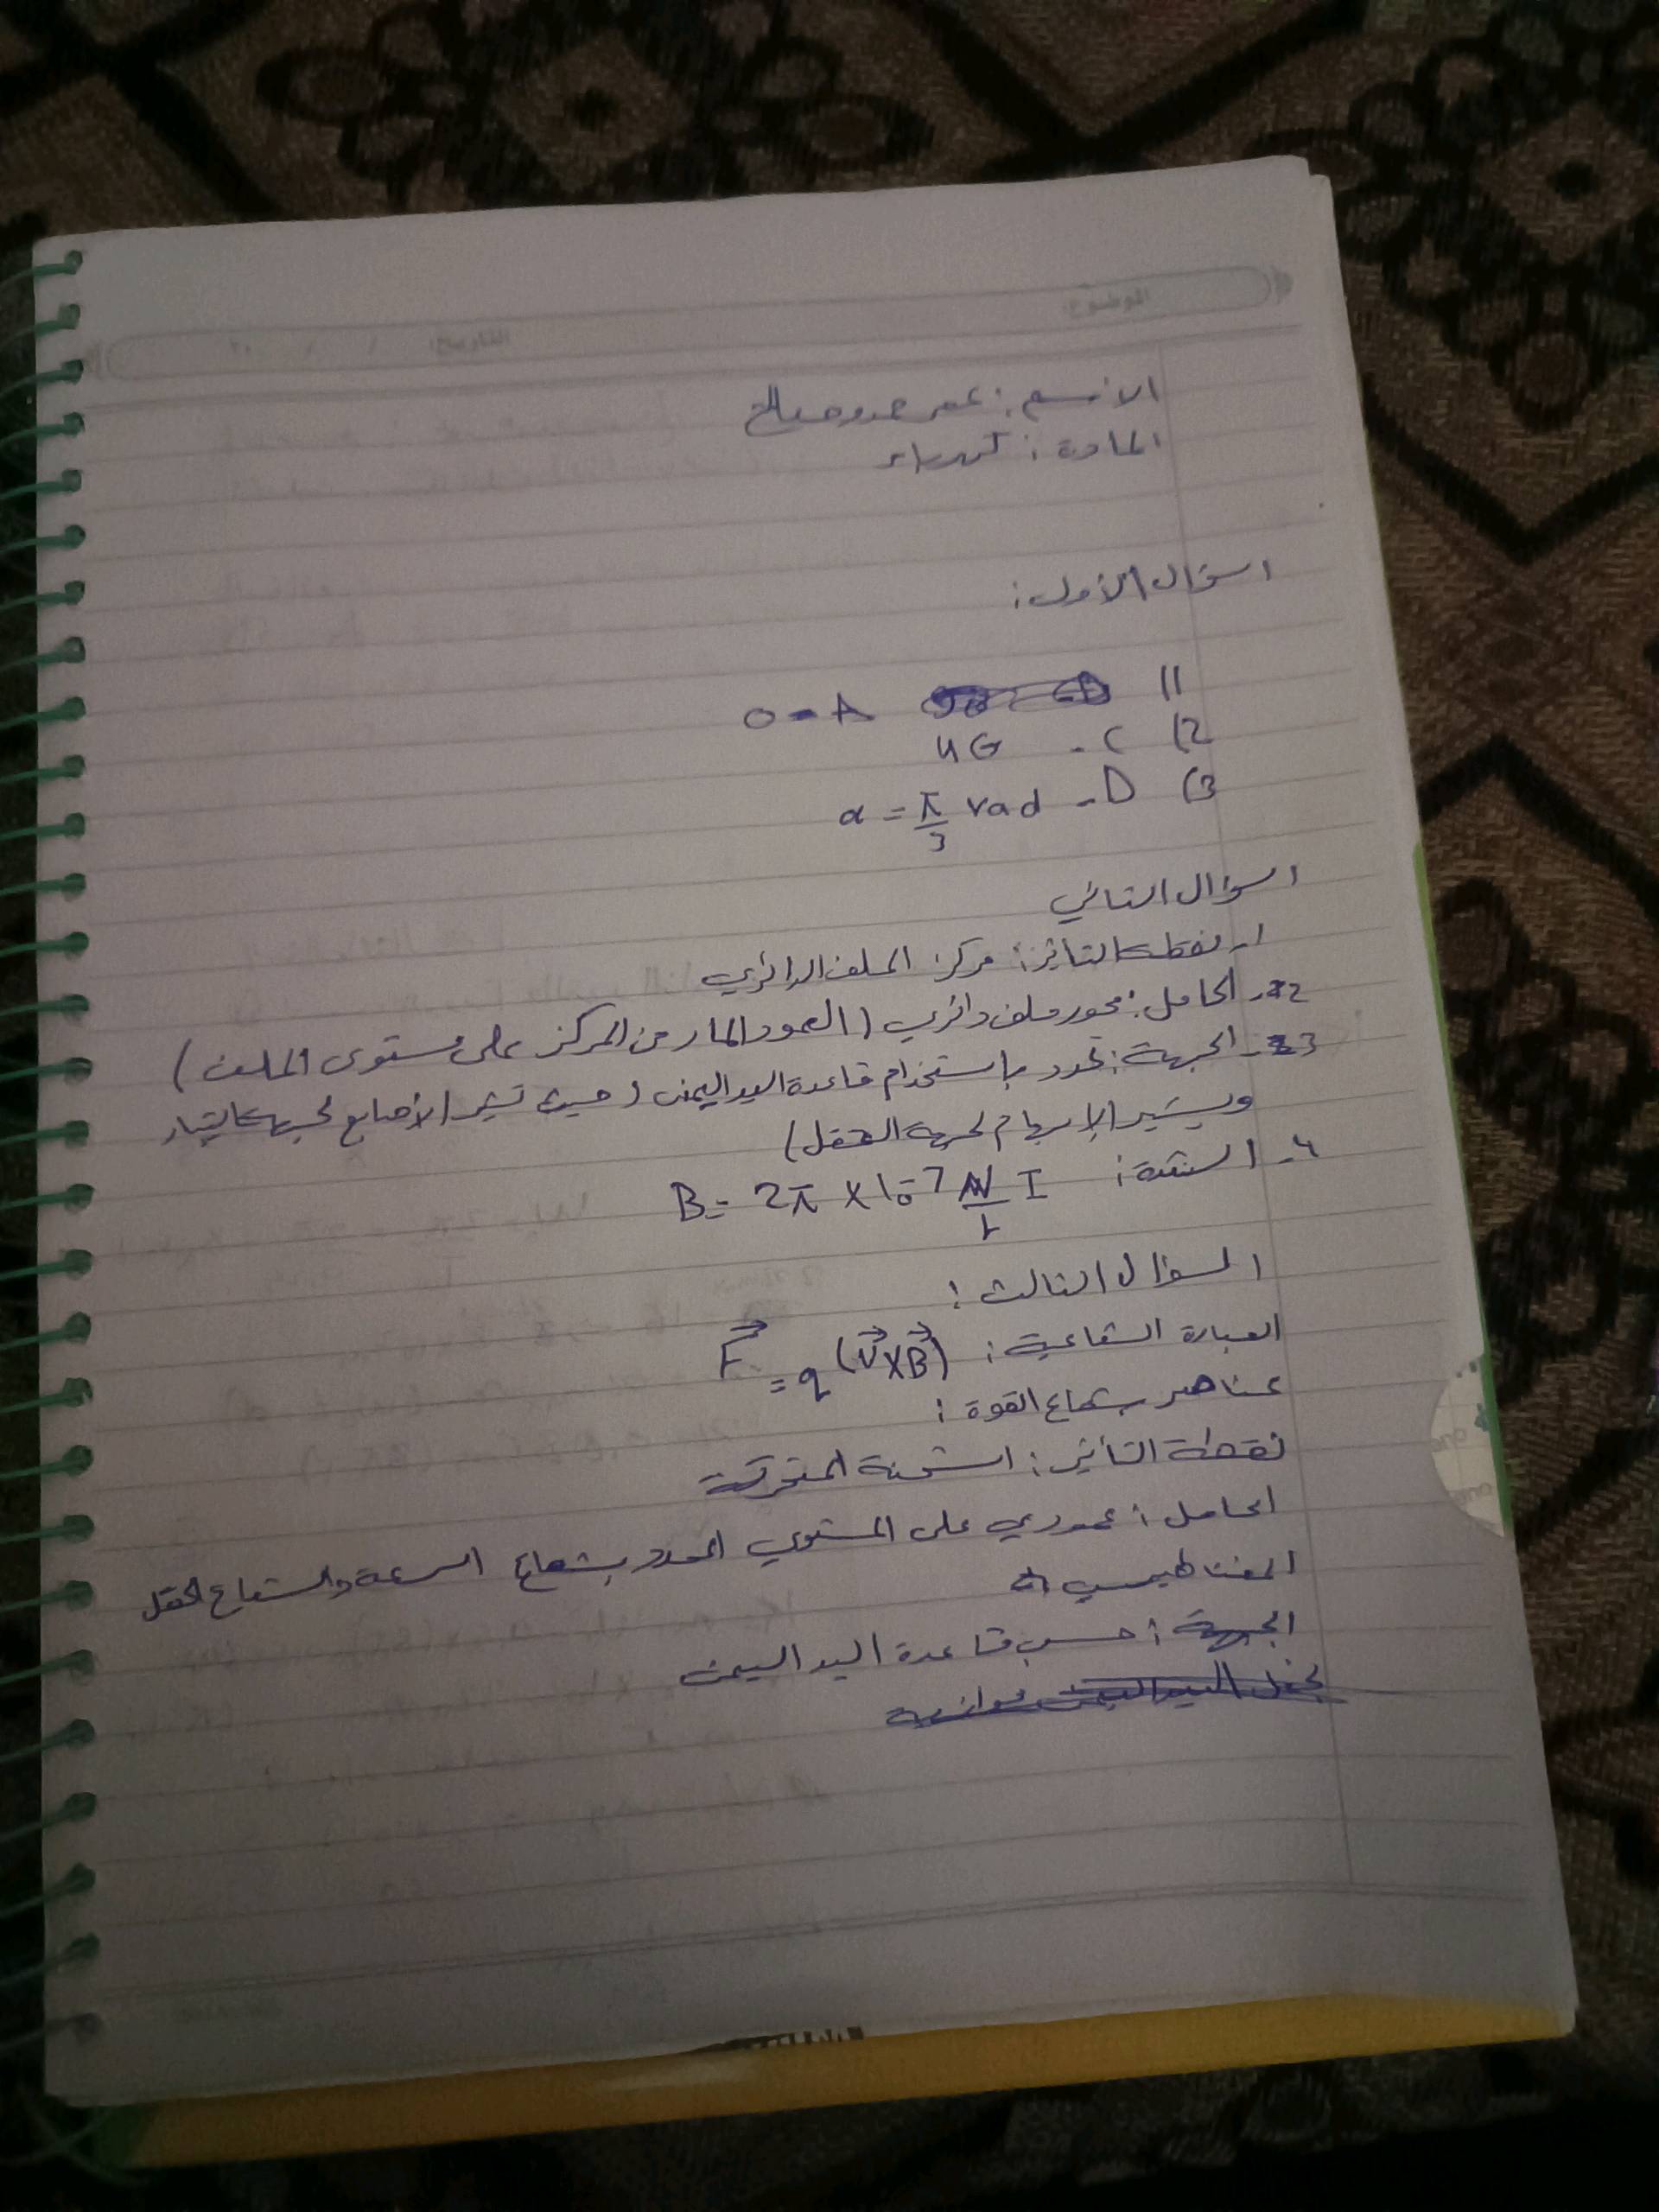 الموضوع:
التاريخ: / / ٢٠
الاسم: عمر صالح
المادة: كهرباء
السؤال الأول:
1) A - 0
2) C - 4G
3) D - α = π/3 rad
السؤال الثاني
1- نقطة التأثير: مركز الملف الدائري
2- الحامل: محور ملف دائري (العمود المار من المركز على مستوى الملف)
3- الجهة: تحدد باستخدام قاعدة اليد اليمنى (حيث تشير الأصابع لجهة التيار
ويشير الإبهام لجهة الحقل)
4- الشدة: B = 2π × 10⁻⁷ N I / r
السؤال الثالث:
العبارة الشعاعية: F⃗ = q (v⃗ × B⃗)
عناصر شعاع القوة:
نقطة التأثير: الشحنة المتحركة
الحامل: عمودي على المستوي المحدد بشعاع السرعة والشعاع الحقل
المغناطيسي
الجهة: حسب قاعدة اليد اليمنى